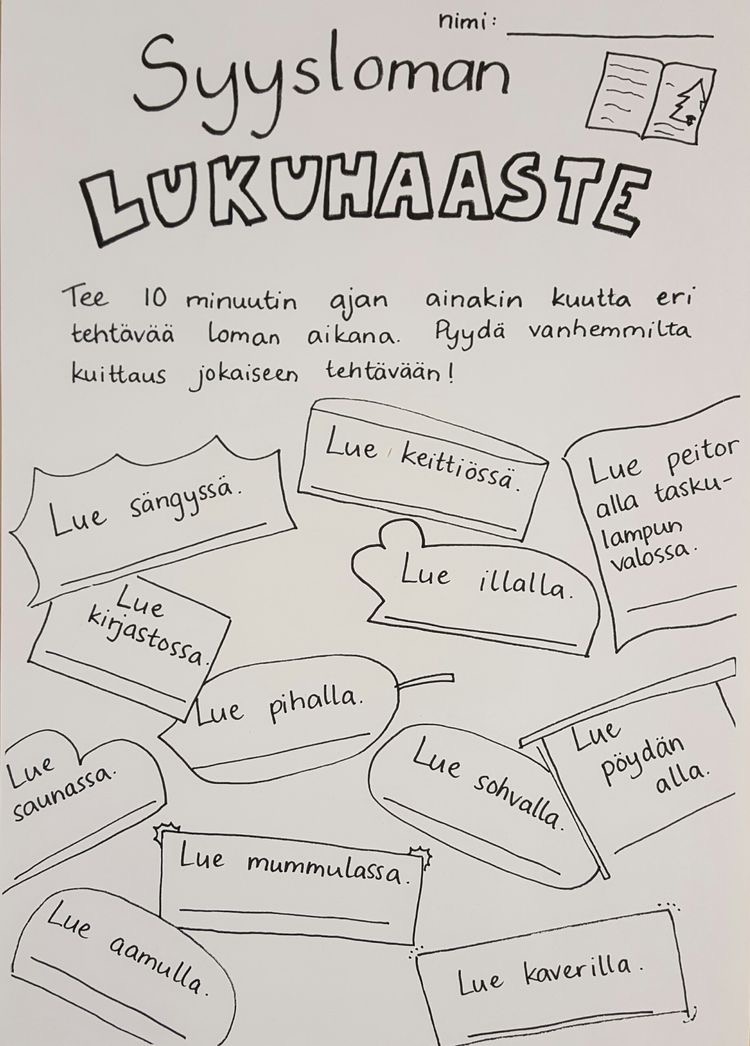 nimi:
Syysloman
LUKUHAASTE
Tee 10 minuutin ajan ainakin kuutta eri
tehtävää loman aikana. Pyydä vanhemmilta
kuittaus jokaiseen tehtävään!
Lue keittiössä.
Lue sängyssä.
Lue peiton
alla tasku-
lampun
valossa.
Lue illalla.
Lue
kirjastossa.
Lue pihalla.
Lue
saunassa.
Lue sohvalla.
Lue
pöydän
alla.
Lue mummulassa.
Lue aamulla.
Lue kaverilla.